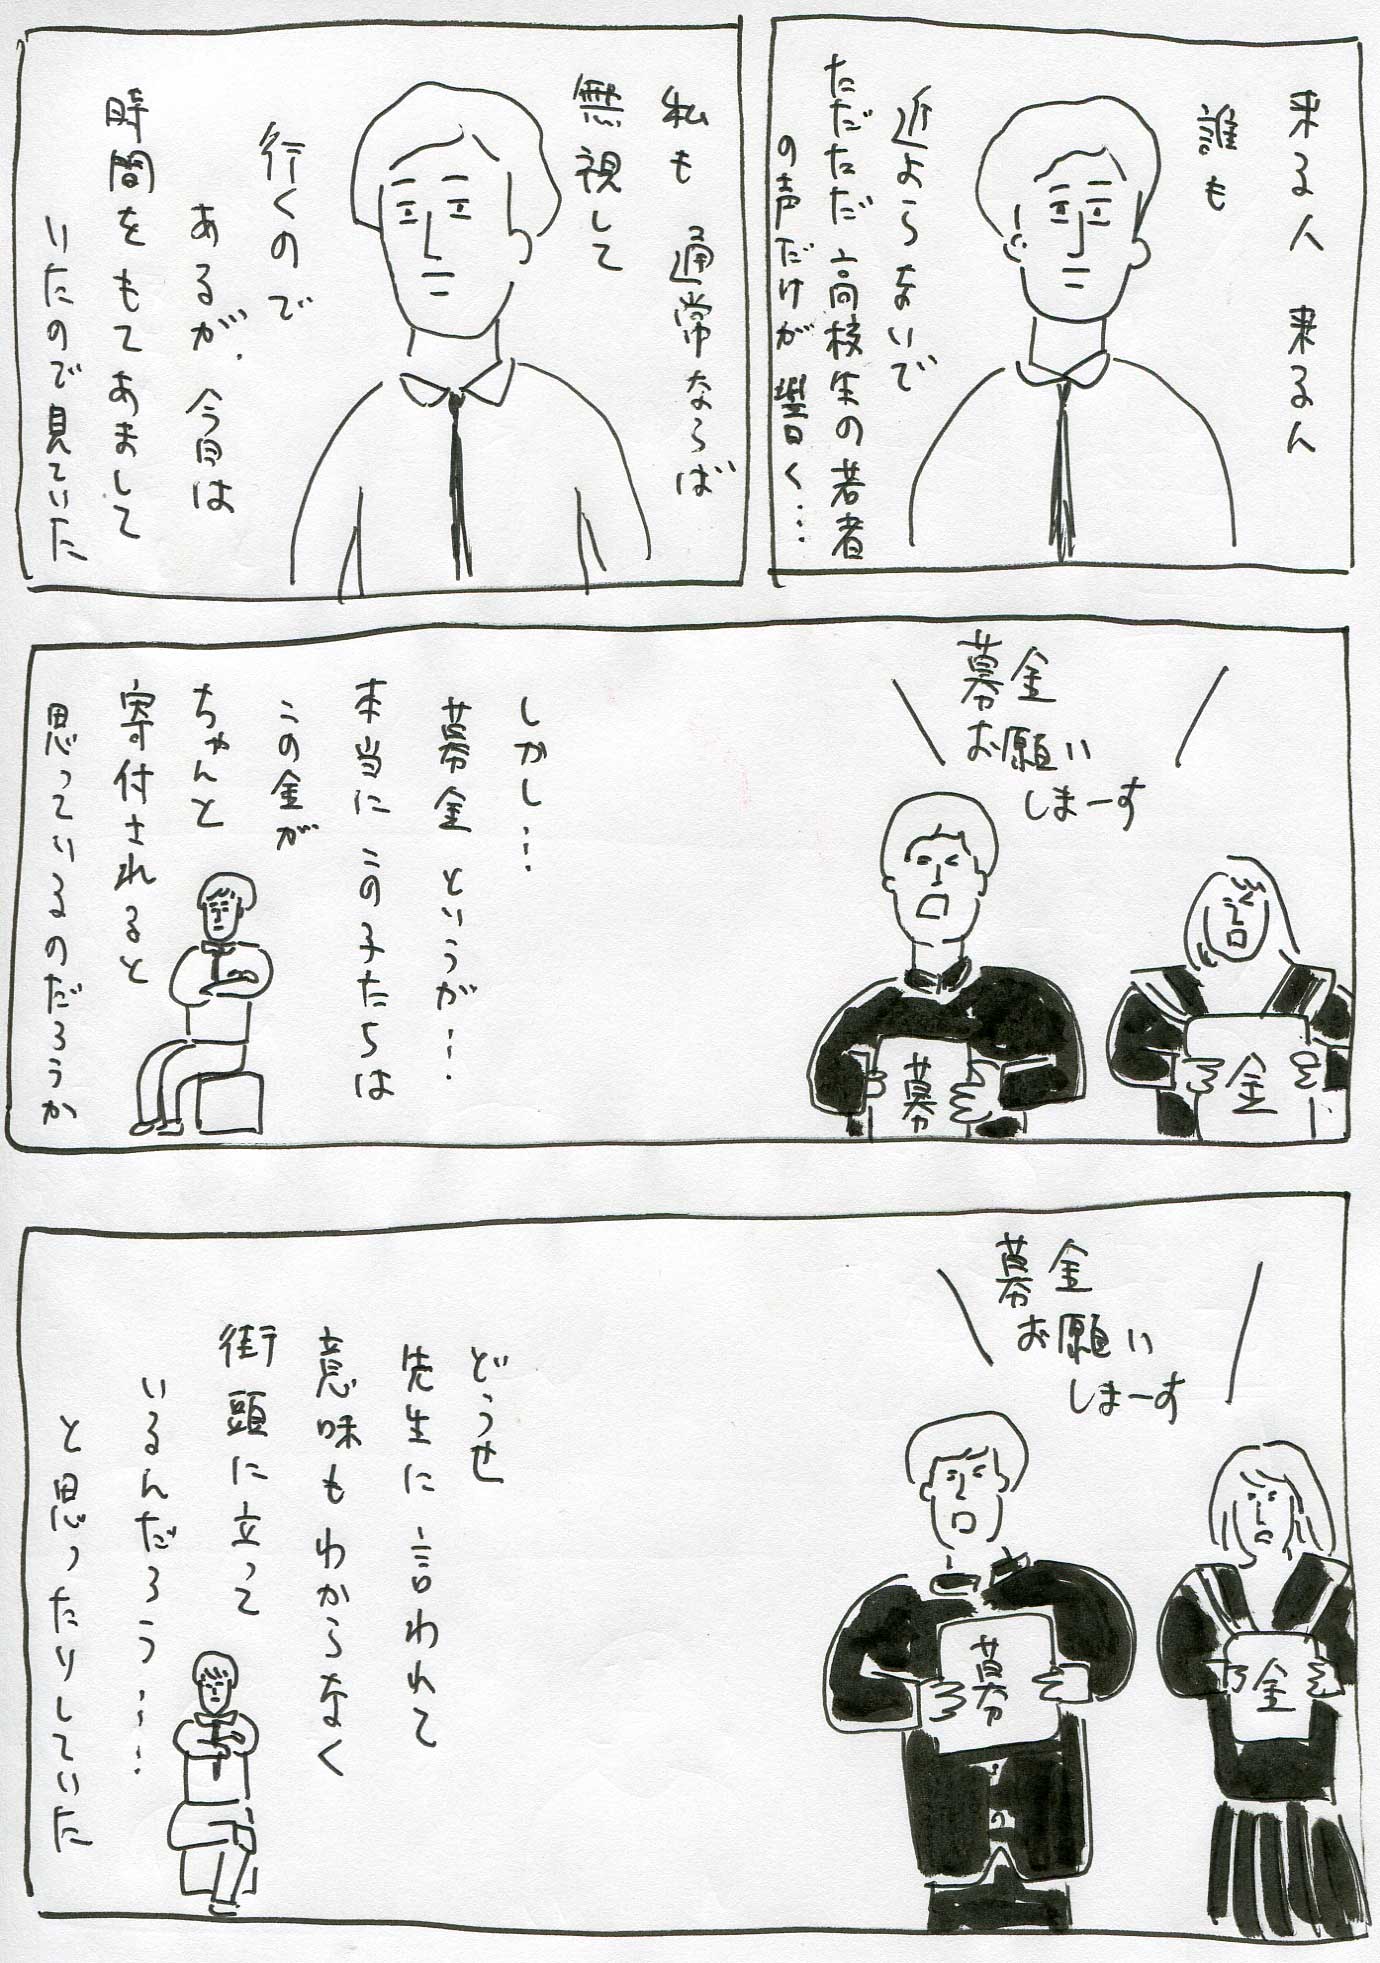 来る人来る人
誰も
近よらないで
ただただ高校生の若者
の声だけが響く…
私も通常ならば
無視して
行くので
あるが、今日は
時間をもてあまして
いたので見ていた
募金
お願い
しまーす
募
金
しかし…
募金というが…
本当にこの子たちは
この金が
ちゃんと
寄付されると
思っているのだろうか
募金
お願い
しまーす
募
金
どうせ
先生に言われて
意味もわからなく
街頭に立って
いるんだろう…
と思ったりしていた